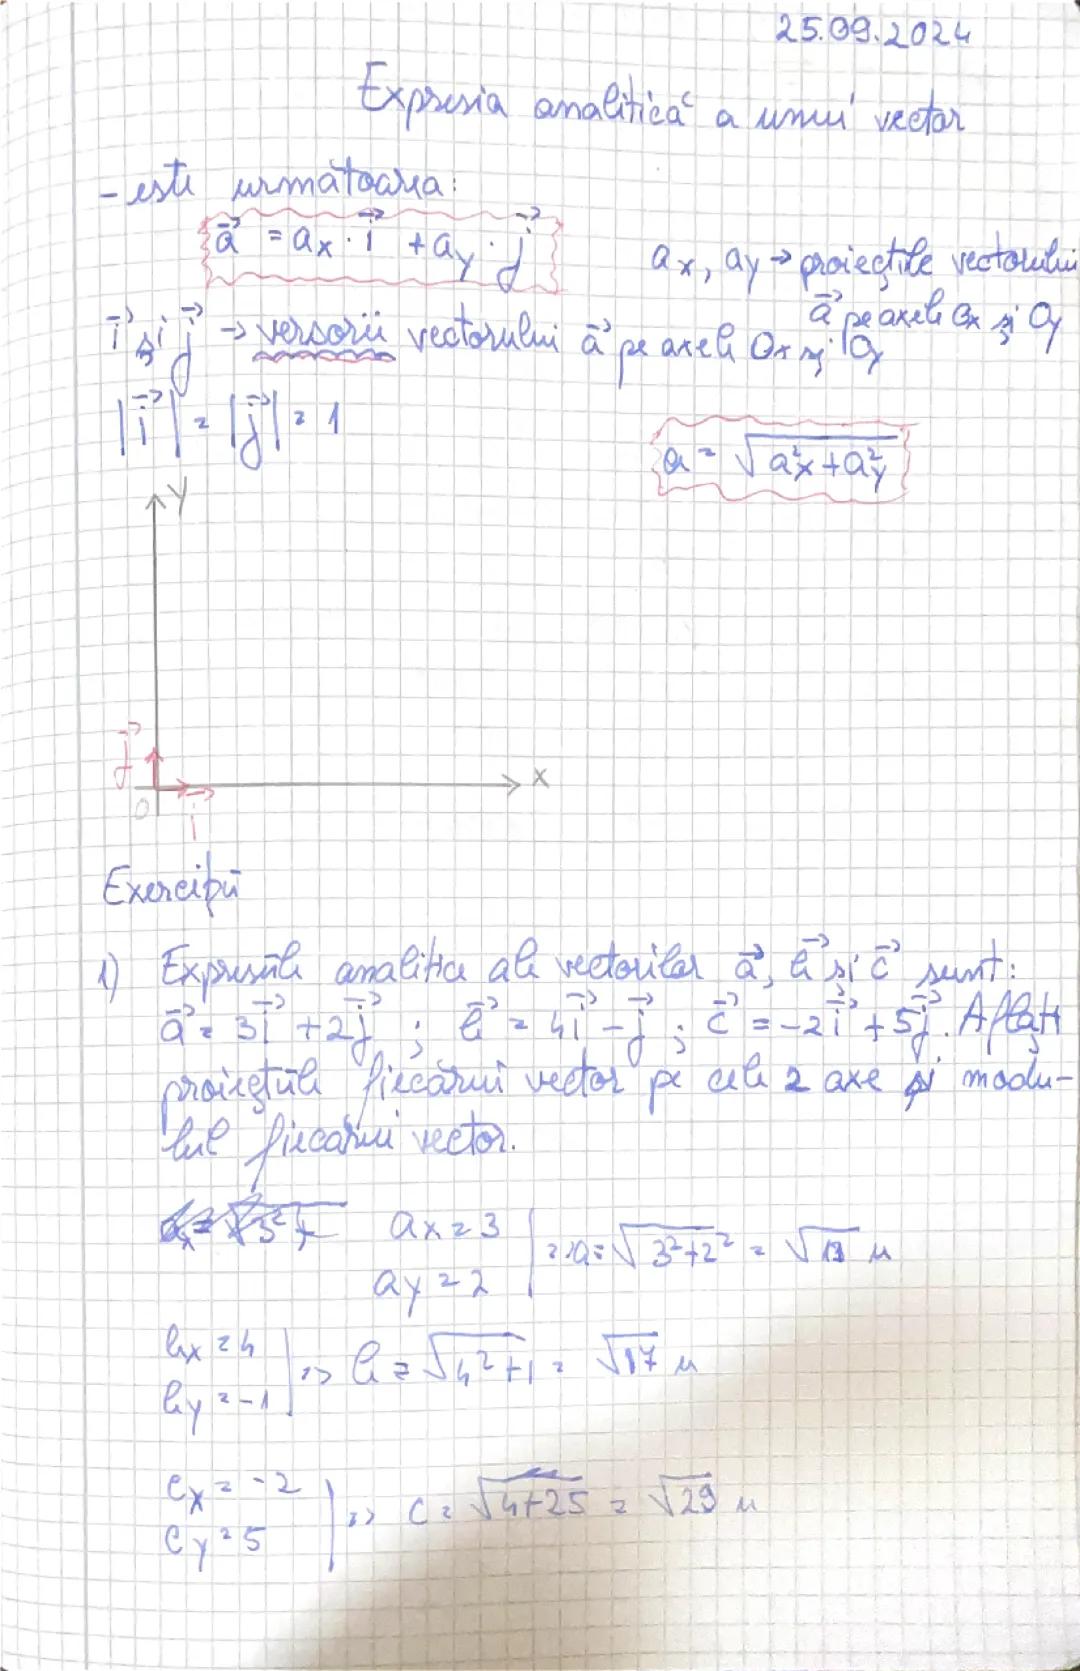 25.09.2024
Expresia analitică a unui vector
- este următoarea:
a⃗ = ax · i⃗ + ay · j⃗
ax, ay → proiecțiile vectorului
a⃗ pe axele Ox și Oy
i⃗ și j⃗ → versorii vectorului a⃗ pe axele Ox și Oy
|i⃗| = |j⃗| = 1
a = √(a²x + a²y)
y
j⃗
x
O
i⃗
Exerciții
1) Expresiile analitice ale vectorilor a⃗, b⃗ și c⃗ sunt:
a⃗ = 3i⃗ + 2j⃗ ; b⃗ = 4i⃗ - j⃗ ; c⃗ = -2i⃗ + 5j⃗. Aflați
proiecțiile fiecărui vector pe cele 2 axe și modu-
lul fiecărui vector.
ax = 3
ay = 2
=> a = √(3² + 2²) = √13 u
bx = 4
by = -1
=> b = √(4² + 1) = √17 u
cx = -2
cy = 5
=> c = √(4+25) = √29 u